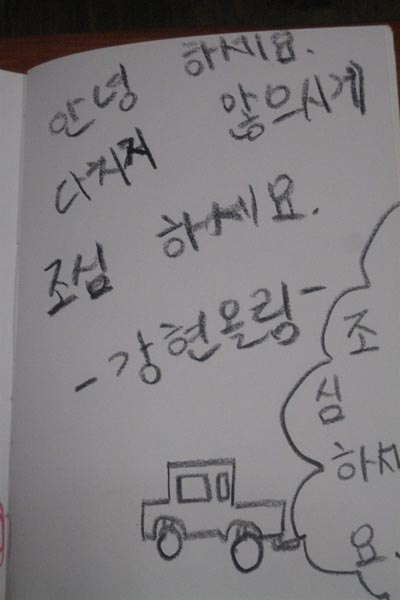 안녕 하세요.
다치지 않으시게
조심 하세요.
-강현올림-
조
심
하세
요.